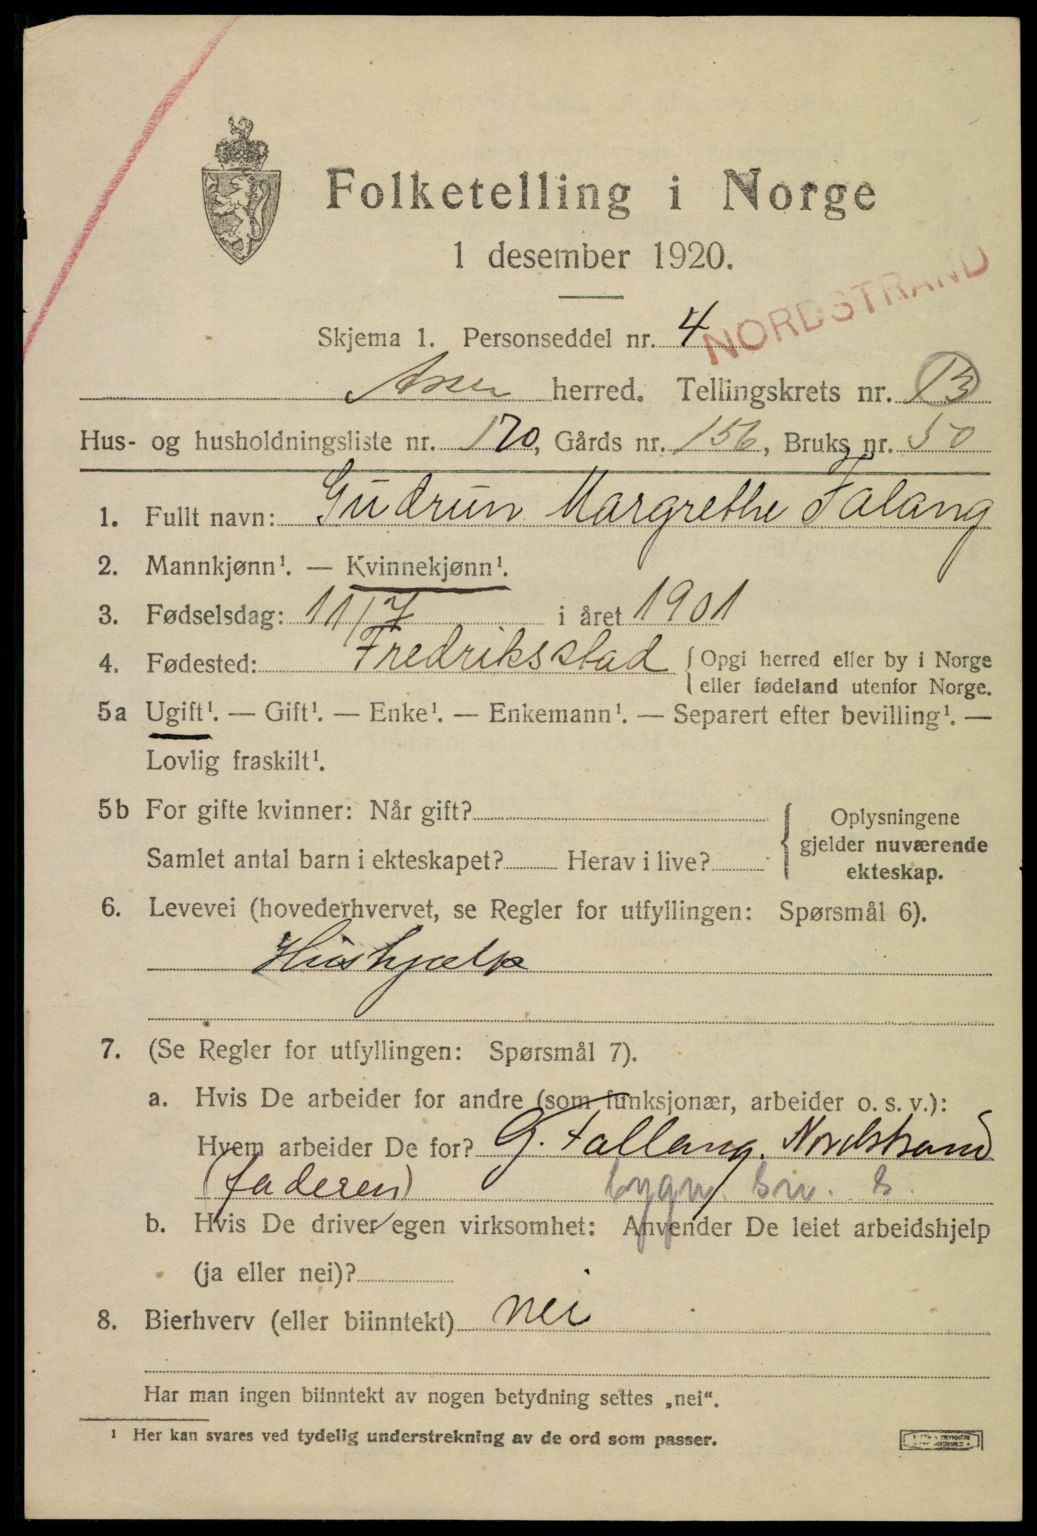 Folketelling i Norge
1 desember 1920.
NORDSTRAND
Skjema 1. Personseddel nr. 4
Aker herred. Tellingskrets nr. 13
Hus- og husholdningsliste nr. 170, Gårds nr. 156, Bruks nr. 50
1. Fullt navn: Gudrun Margrethe Falang
2. Mannkjønn¹. — Kvinnekjønn¹.
3. Fødselsdag: 11/7 i året 1901
4. Fødested: Fredriksstad {Opgi herred eller by i Norge
eller fødeland utenfor Norge.
5a Ugift¹. — Gift¹. — Enke¹. — Enkemann¹. — Separert efter bevilling¹. —
Lovlig fraskilt¹.
5b For gifte kvinner: Når gift?
Samlet antal barn i ekteskapet? Herav i live?
Oplysningene
gjelder nuværende
ekteskap.
6. Levevei (hovederhvervet, se Regler for utfyllingen: Spørsmål 6).
Hushjælp
7. (Se Regler for utfyllingen: Spørsmål 7).
a. Hvis De arbeider for andre (som funksjonær, arbeider o. s. v.):
Hvem arbeider De for? G. Fallang. Nordstrand
(faderen)
b. Hvis De driver egen virksomhet: Anvender De leiet arbeidshjelp
(ja eller nei)?
8. Bierhverv (eller biinntekt) nei
Har man ingen biinntekt av nogen betydning settes „nei“.
¹ Her kan svares ved tydelig understrekning av de ord som passer.